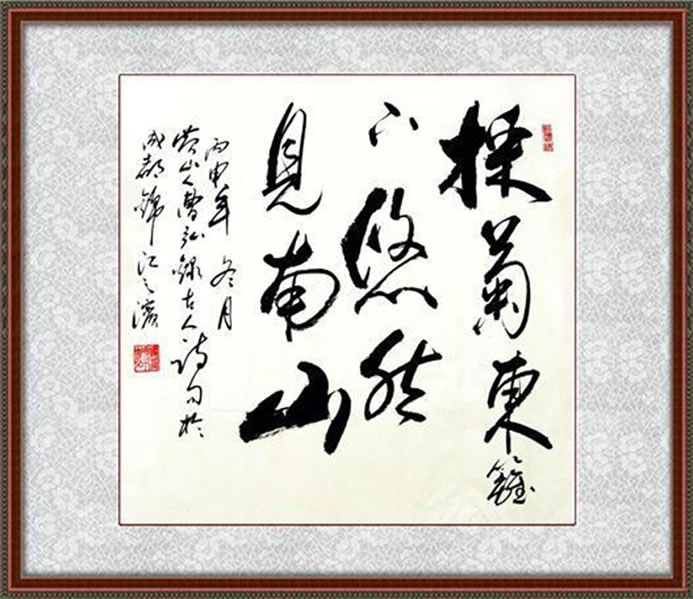 採菊東籬
下悠然
見南山
丙申年 冬月
黄山人曹弘錄古人诗句於
成都錦江之濱